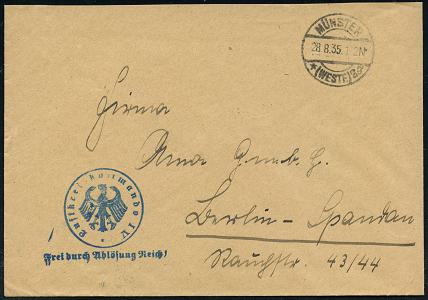 MÜNSTER
28.8.35.1-2N
* (WESTF)
Firma
G.m.b.H.
Berlin-Spandau
Rauchstr. 43/44
Luftkreis-Kommando IV
Frei durch Ablösung Reich!